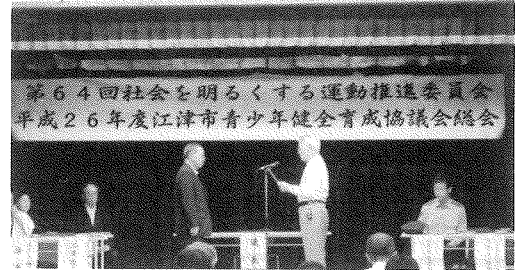 第６４回社会を明るくする運動推進委員会
平成２６年度江津市青少年健全育成協議会総会